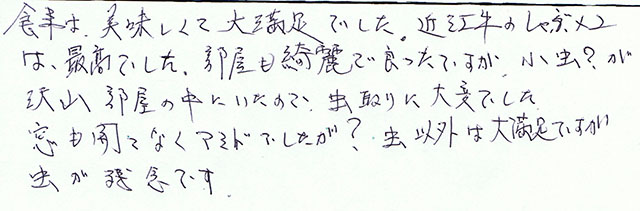 食事は、美味しくて大満足でした。近江牛のしゃぶメン
は、最高でした。部屋も綺麗で良ったですが、小虫?が
沢山部屋の中にいたので、虫取りに大変でした
窓も開てなくアミドでしたが?虫以外は大満足ですが
虫が残念です。